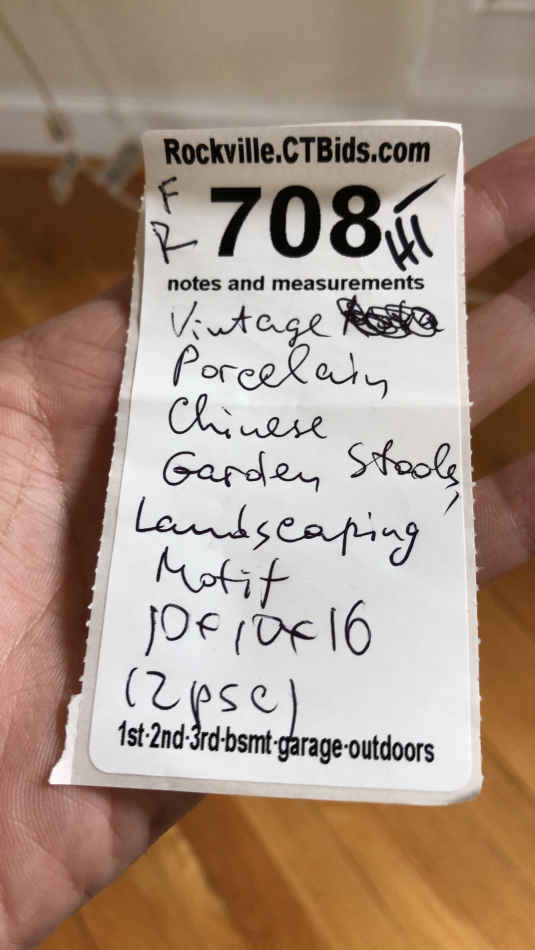 Rockville.CTBids.com
F
R
708
HI
notes and measurements
Vintage
Porcelain
Chinese
Garden Stools,
Landscaping
Motif
10x10x16
(2psc)
1st·2nd·3rd·bsmt·garage·outdoors